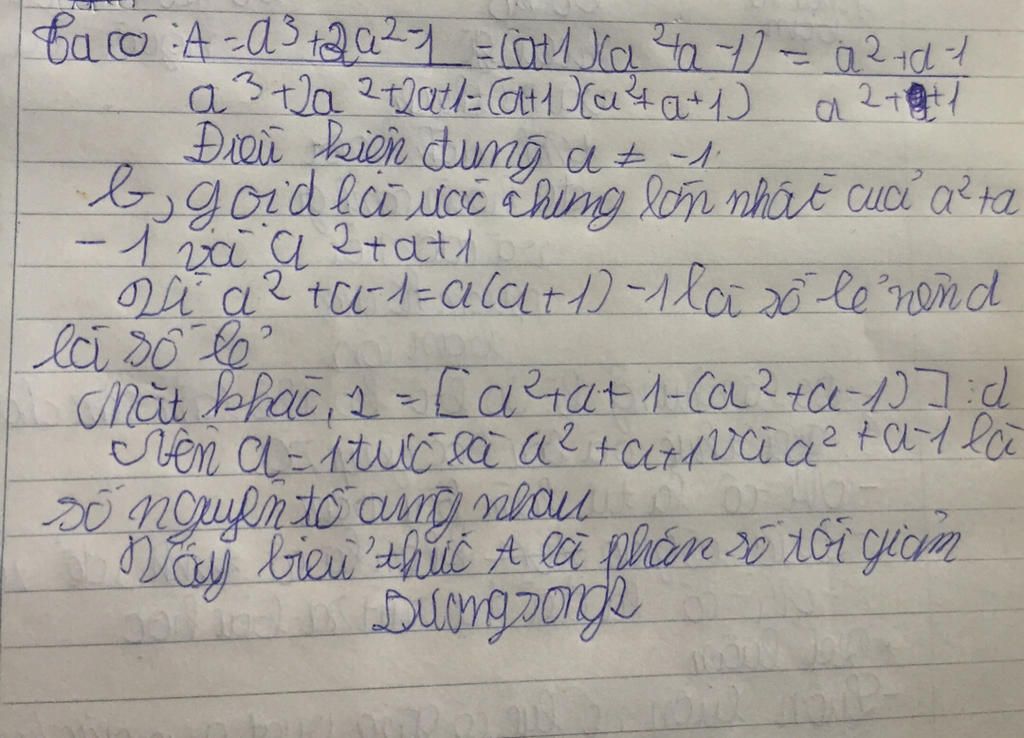 Ta có : A = a³+2a²-1 = (a+1)(a²+a-1) = a²+a-1
a³+2a²+2a+1=(a+1)(a²+a+1) a²+a+1
Điều kiện đung a ≠ -1.
b, gọi d là ước chung lớn nhất của a²+a
-1 và a²+a+1
Vì a²+a-1=a(a+1)-1 là số lẻ nên d
là số lẻ
Mặt khác, 2 = [a²+a+1-(a²+a-1)] : d
Nên a=1 tức là a²+a+1 và a²+a-1 là
số nguyên tố cùng nhau
Vậy biểu thức A là phân số tối giản